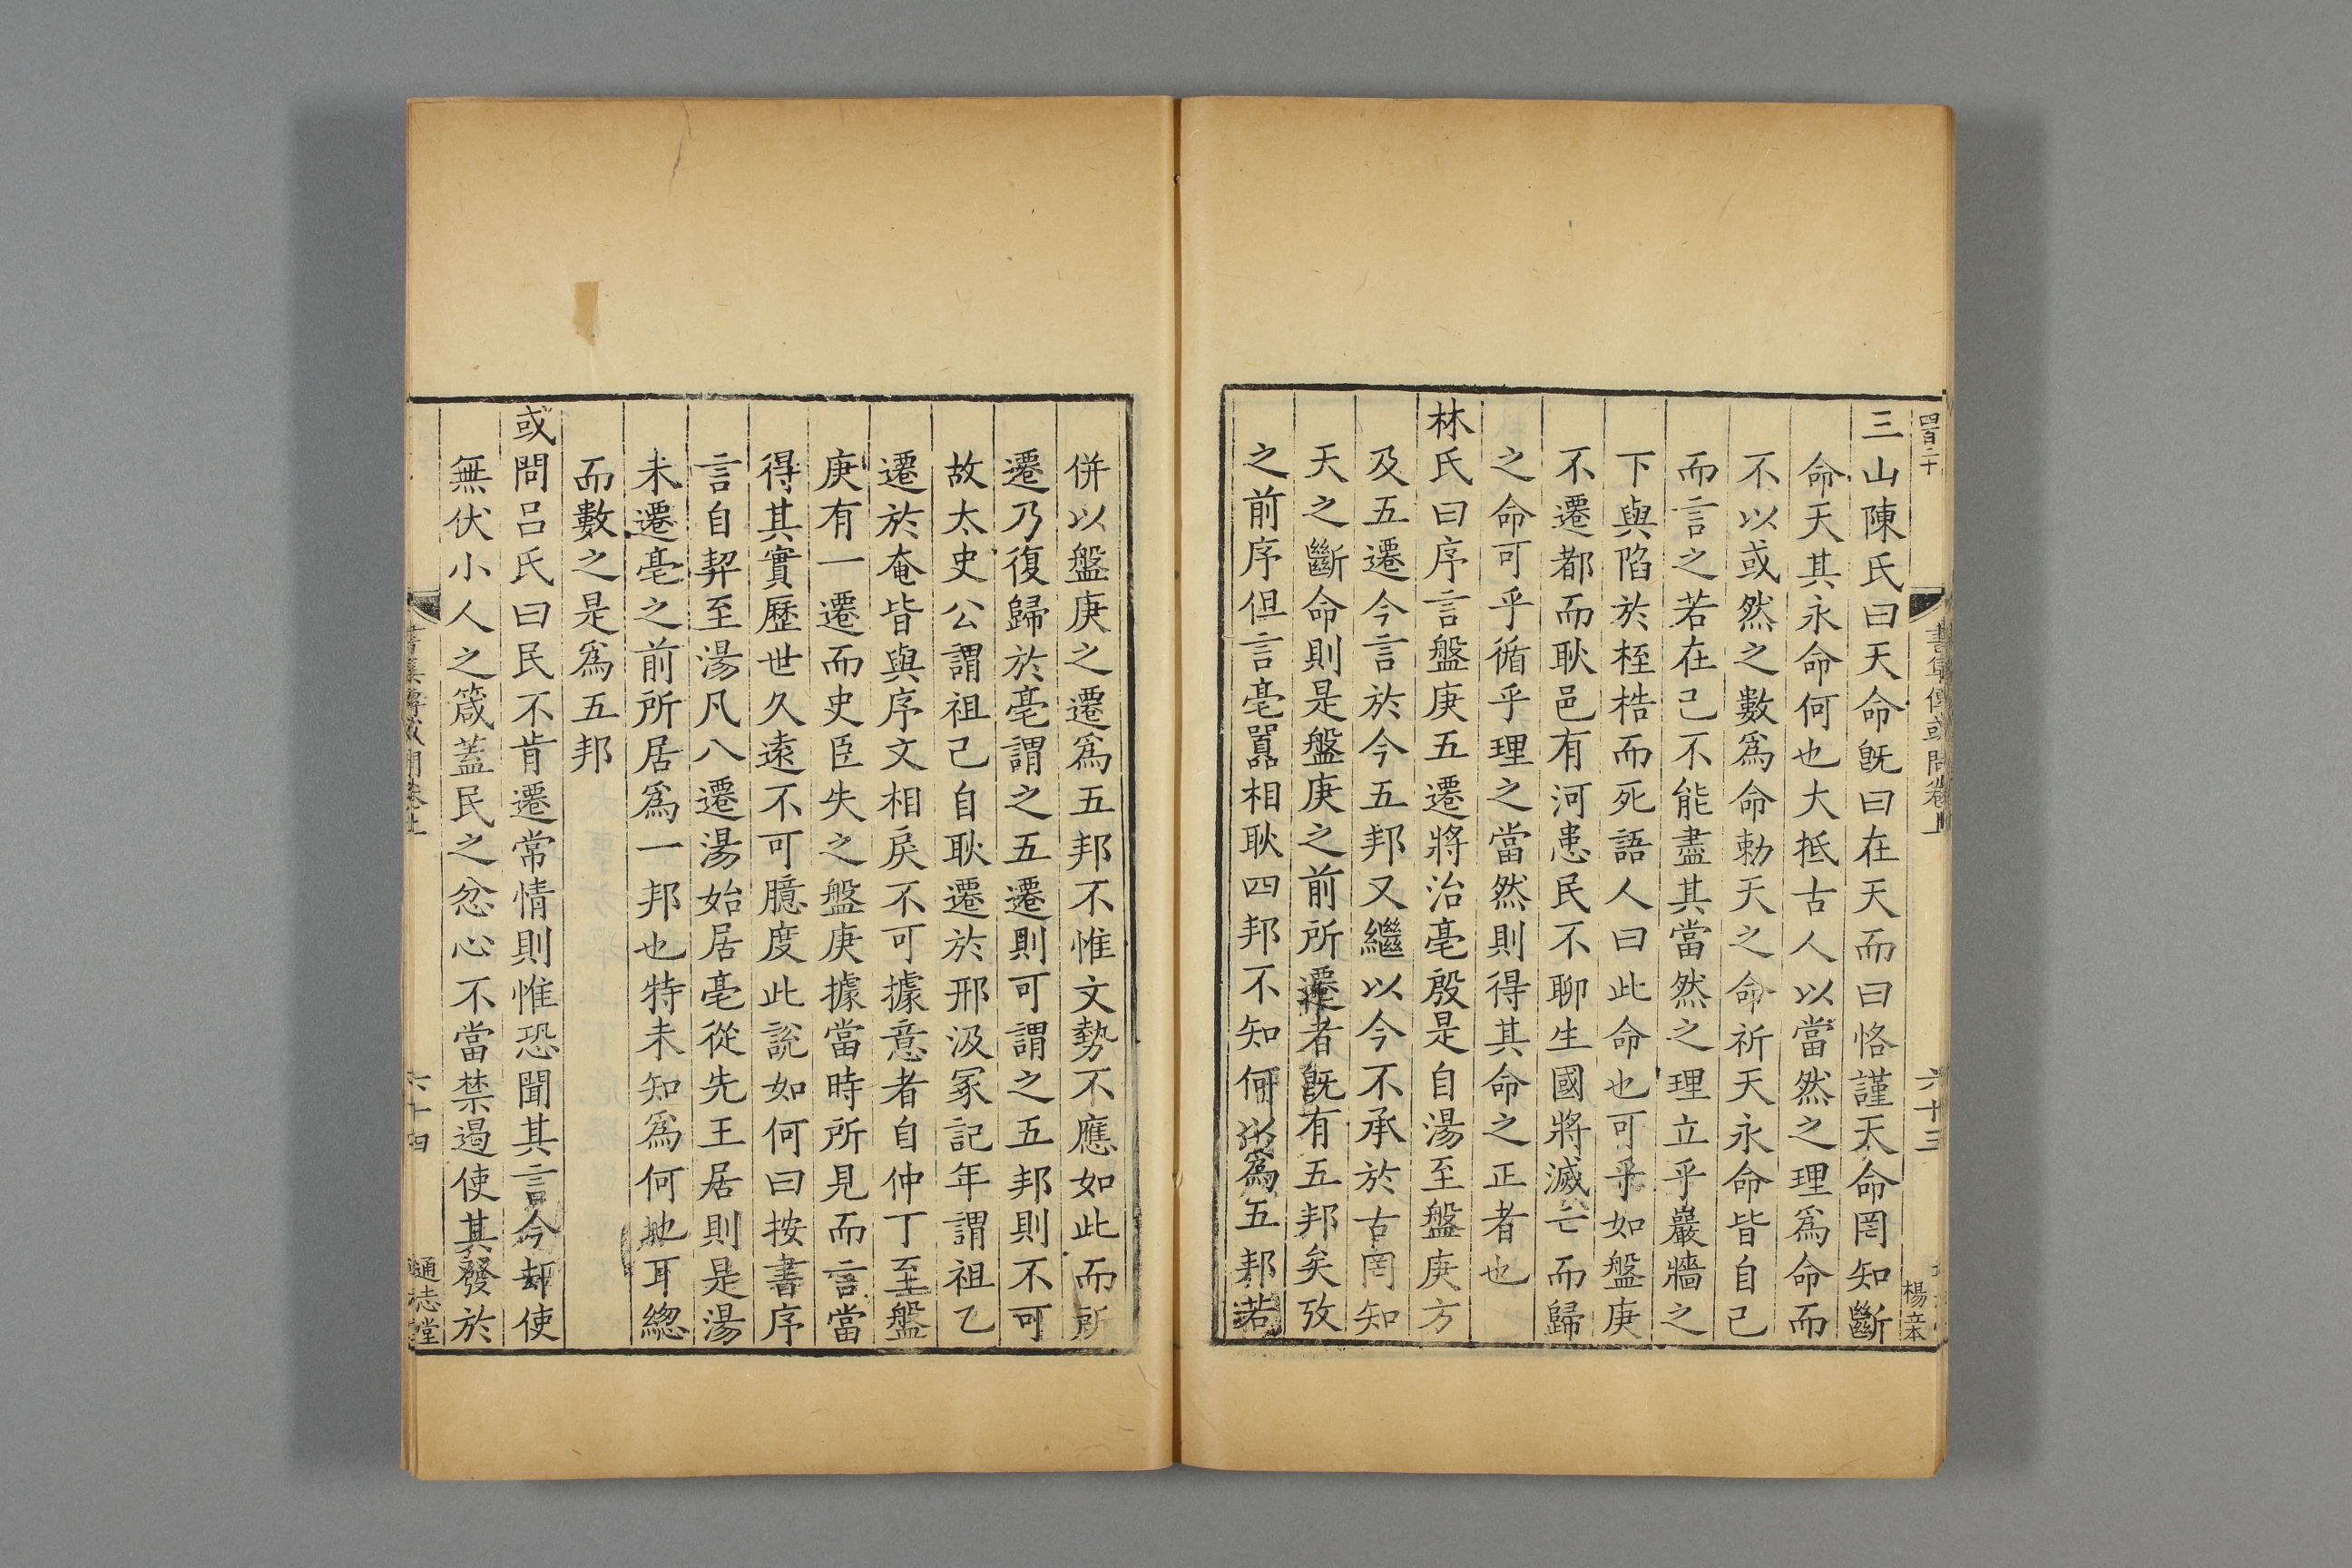 三山陳氏曰天命旣曰在天而曰恪謹天命罔知斷
命天其永命何也大抵古人以當然之理爲命而
不以或然之數爲命勑天之命祈天永命皆自己
而言之若在己不能盡其當然之理立乎巖牆之
下與陷於桎梏而死語人曰此命也可乎如盤庚
不遷都而耿邑有河患民不聊生國將滅亡而歸
之命可乎循乎理之當然則得其命之正者也
林氏曰序言盤庚五遷將治亳殷是自湯至盤庚方
及五遷今言於今五邦又繼以今不承於古罔知
天之斷命則是盤庚之前所遷者旣有五邦矣攷
之前序但言亳嚻相耿四邦不知何以爲五邦若
四百二十
書集傳或問卷上
六十三
楊立本
併以盤庚之遷爲五邦不惟文勢不應如此而所
遷乃復歸於亳謂之五遷則可謂之五邦則不可
故太史公謂祖己自耿遷於邢汲冢記年謂祖乙
遷於奄皆與序文相戾不可據意者自仲丁至盤
庚有一遷而史臣失之盤庚據當時所見而言當
得其實歷世久遠不可臆度此說如何曰按書序
言自契至湯凡八遷湯始居亳從先王居則是湯
未遷亳之前所居爲一邦也特未知爲何地耳總
而數之是爲五邦
或問呂氏曰民不肯遷常情則惟恐聞其言今却使
無伏小人之箴蓋民之忿心不當禁遏使其發於
書集傳或問卷上
六十四
通志堂